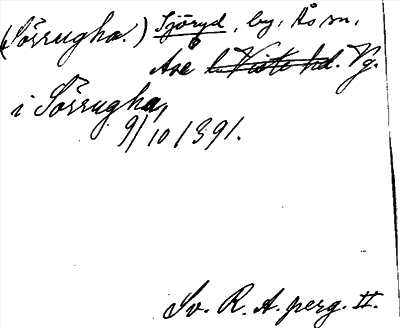 (Sörrugha.) Sjöryd, by, Ås sn,
Åse l. Viste hd. Vg.
i Sörrugha,
9/10 1391.
Sv. R. A. perg. II.